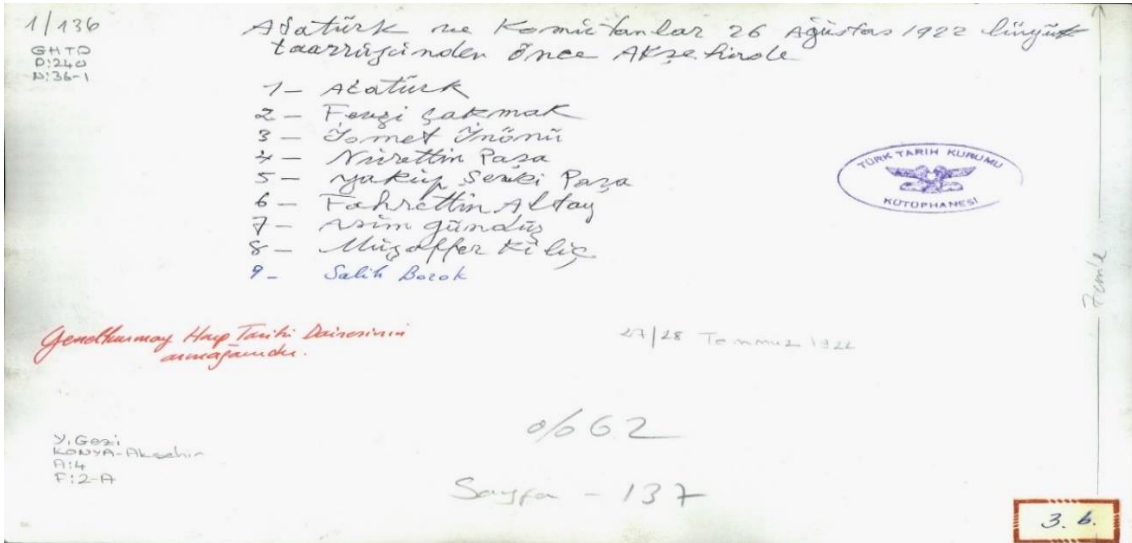 1/136
GHTD
D:240
N:36-1
Atatürk ve Komutanlar 26 Ağustos 1922 büyük
taarruzundan önce Akşehirde
1- Atatürk
2- Fevzi Çakmak
3- İsmet İnönü
4- Nurettin Paşa
5- Yakup Şevki Paşa
6- Fahrettin Altay
7- Asim Gündüz
8- Muzaffer Kiliç
9- Salih Bozok
TÜRK TARIH KURUMU
KÜTÜPHANESİ
Genelkurmay Harp Tarihi Dairesinin
armağanıdır.
27/28 Temmuz 1922
% 62
Y.Gezi
KONYA-Akşehir
A:4
F:2-A
Sayfa - 137
3. b.